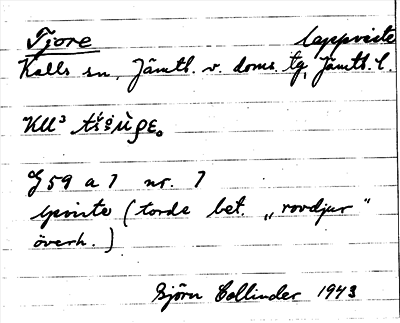 Tjore lappviste
Kalls sn, Jämtl. v. doms. tg, Jämtl. l.
J 59 a 7 nr. 7
lpviste (torde bet. „rovdjur”
överh.)
Björn Collinder 1943